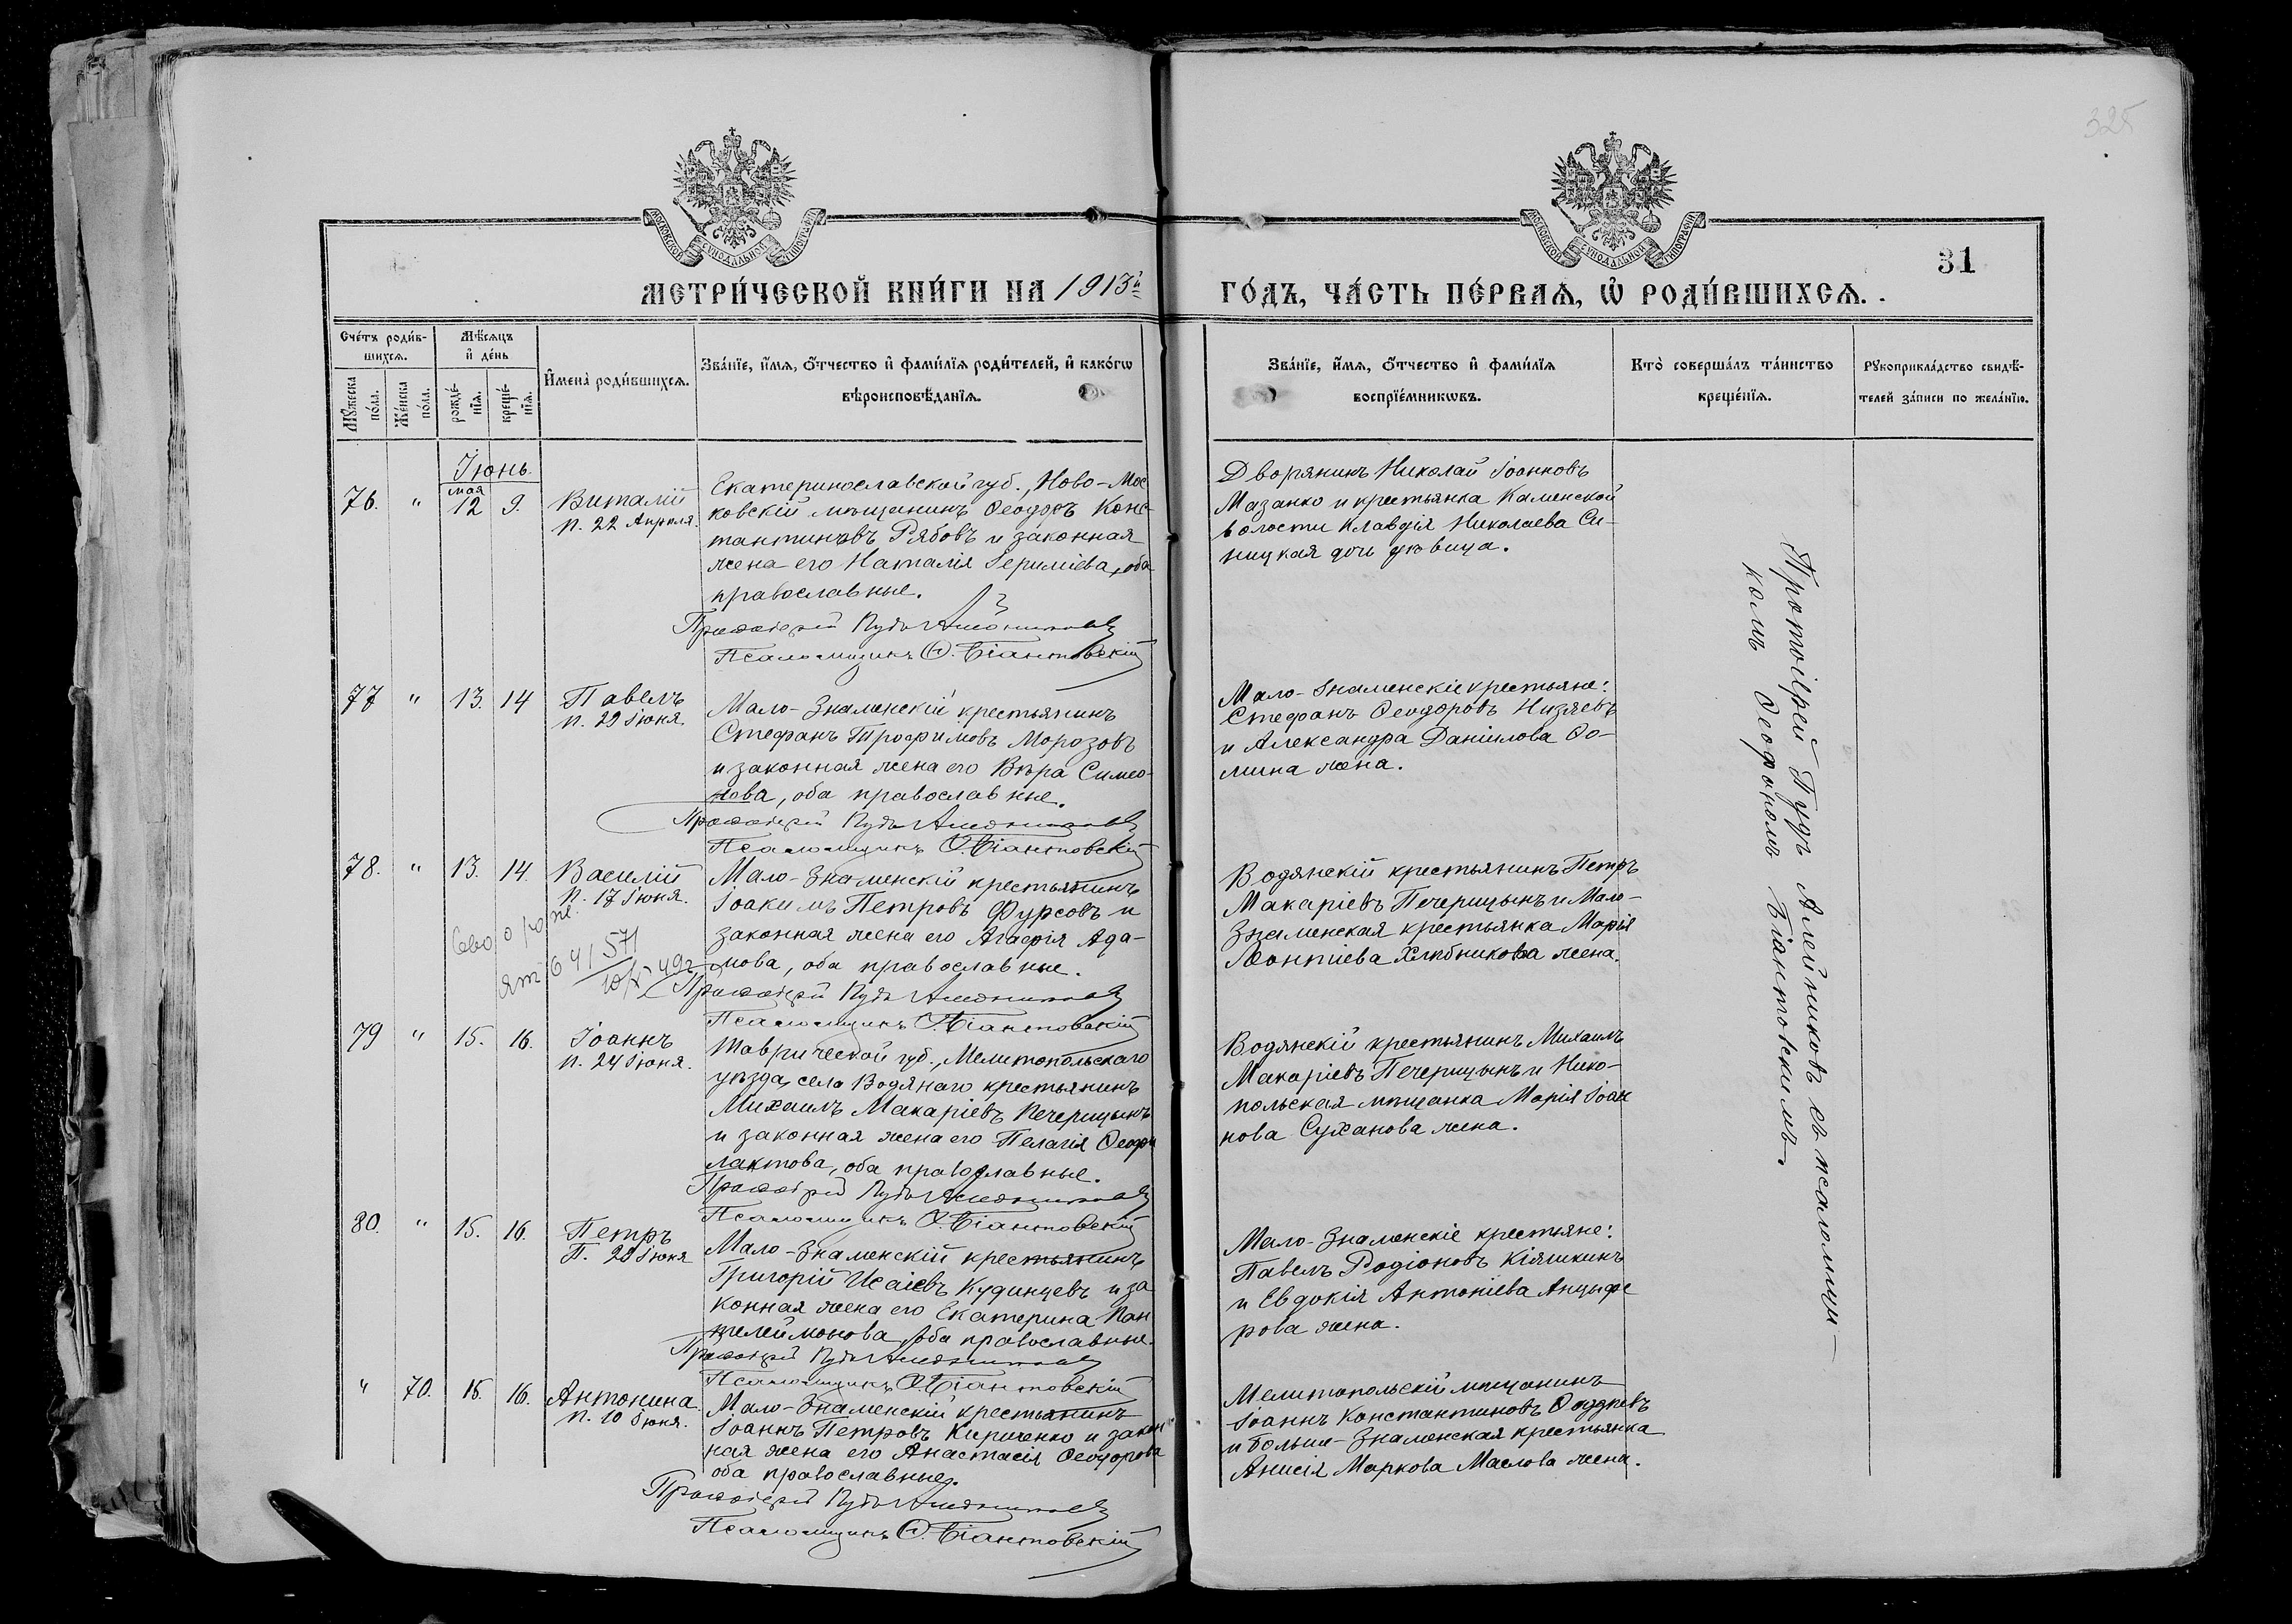 325
МОСКОВСКОЙ СѴНОДАЛЬНОЙ ТИПОГРАФІИ
МОСКОВСКОЙ СѴНОДАЛЬНОЙ ТИПОГРАФІИ
31
МЕТРИ́ЧЕСКОЙ КНИ́ГИ НА 1913й
ГО́ДЪ, ЧА́СТЬ ПЕ́РВАѦ, Ѡ҆ РОДИ́ВШИХСѦ.
Сче́тъ роди́в-
шихсѧ.
Мꙋ́жеска по́ла.
Же́нска по́ла.
Мѣ́сѧцъ и҆ де́нь
рожде́-
нїѧ.
креще́-
нїѧ.
И҆мена̀ роди́вшихсѧ.
Зва́нїе, и҆́мѧ, ѻ҆́тчество и҆ фами́лїѧ роди́телей, и҆ како́гѡ
вѣроисповѣ́данїѧ.
Зва́нїе, и҆́мѧ, ѻ҆́тчество и҆ фами́лїѧ
воспрїе́мникѡвъ.
Кто̀ соверша́лъ та́инство
креще́нїѧ.
Рꙋкоприкла́дство свидѣ́-
телей за́писи по жела́нїю.
Іюнь.
76. " мая 12 9. Виталій
п. 22 Апрѣля.
Екатеринославской губ., Ново-Мос
ковскій мѣщанинъ Ѳеодоръ Конс-
тантиновъ Рябовъ и законная
жена его Наталія Іереміева, оба
православные.
Протоіерей Пудъ Алейниковъ
Псаломщикъ Ѳ. Біантовскій
Дворянинъ Николай Іоанновъ
Мазанко и крестьянка Каменской
волости Клавдія Николаева Си-
ницкая дочь дѣвица.
77 " 13. 14 Павелъ
п. 29 Іюня.
Мало-Знаменскій крестьянинъ
Стефанъ Трофимовъ Морозовъ
и законная жена его Вѣра Симео-
нова, оба православные.
Протоіерей Пудъ Алейниковъ
Псаломщикъ Ѳ. Біантовскій
Мало-Знаменскіе крестьяне:
Стефанъ Ѳеодоровъ Низяевъ
и Александра Даніилова Ѳо-
мина жена.
78. " 13. 14. Василій
п. 17 Іюня.
Мало-Знаменскій крестьянинъ
Іоакимъ Петровъ Фурсовъ и
законная жена его Агафія Ада-
мова, оба православные.
Протоіерей Пудъ Алейниковъ
Псаломщикъ Ѳ. Біантовскій
Водянскій крестьянинъ Петръ
Макаріевъ Печерицынъ и Мало-
Знаменская крестьянка Марія
Леонтіева Хлѣбникова жена.
79 " 15. 16. Іоаннъ
п. 24 Іюня.
Таврической губ., Мелитопольскаго
уѣзда, села Водянаго крестьянинъ
Михаилъ Макаріевъ Печерицынъ
и законная жена его Пелагія Ѳеофи
лактова, оба православные.
Протоіерей Пудъ Алейниковъ
Псаломщикъ Ѳ. Біантовскій
Водянскій крестьянинъ Михаилъ
Макаріевъ Печерицынъ и Нико-
польская мѣщанка Марія Іоан
нова Суханова жена.
80. " 15. 16. Петръ
П. 29 Іюня
Мало-Знаменскій крестьянинъ
Григорій Исаіевъ Кудинцевъ и за
конная жена его Екатерина Пан
телеймонова, оба православные.
Протоіерей Пудъ Алейниковъ
Псаломщикъ Ѳ. Біантовскій
Мало-Знаменскіе крестьяне:
Павелъ Родіоновъ Кіяшкинъ
и Евдокія Антоніева Анцыфе
рова жена.
" 70. 15. 16. Антонина.
п. 10 Іюня.
Мало-Знаменскій крестьянинъ
Іоаннъ Петровъ Кириченко и закон
ная жена его Анастасія Ѳеодорова
оба православные.
Протоіерей Пудъ Алейниковъ
Псаломщикъ Ѳ. Біантовскій
Мелитопольскій мѣщанинъ
Іоаннъ Константиновъ
и Больше-Знаменская крестьянка
Анисія Маркова Маслова жена.
Протоіерей Пудъ Алейниковъ съ псаломщи-
комъ Ѳеофономъ Біантовскимъ.